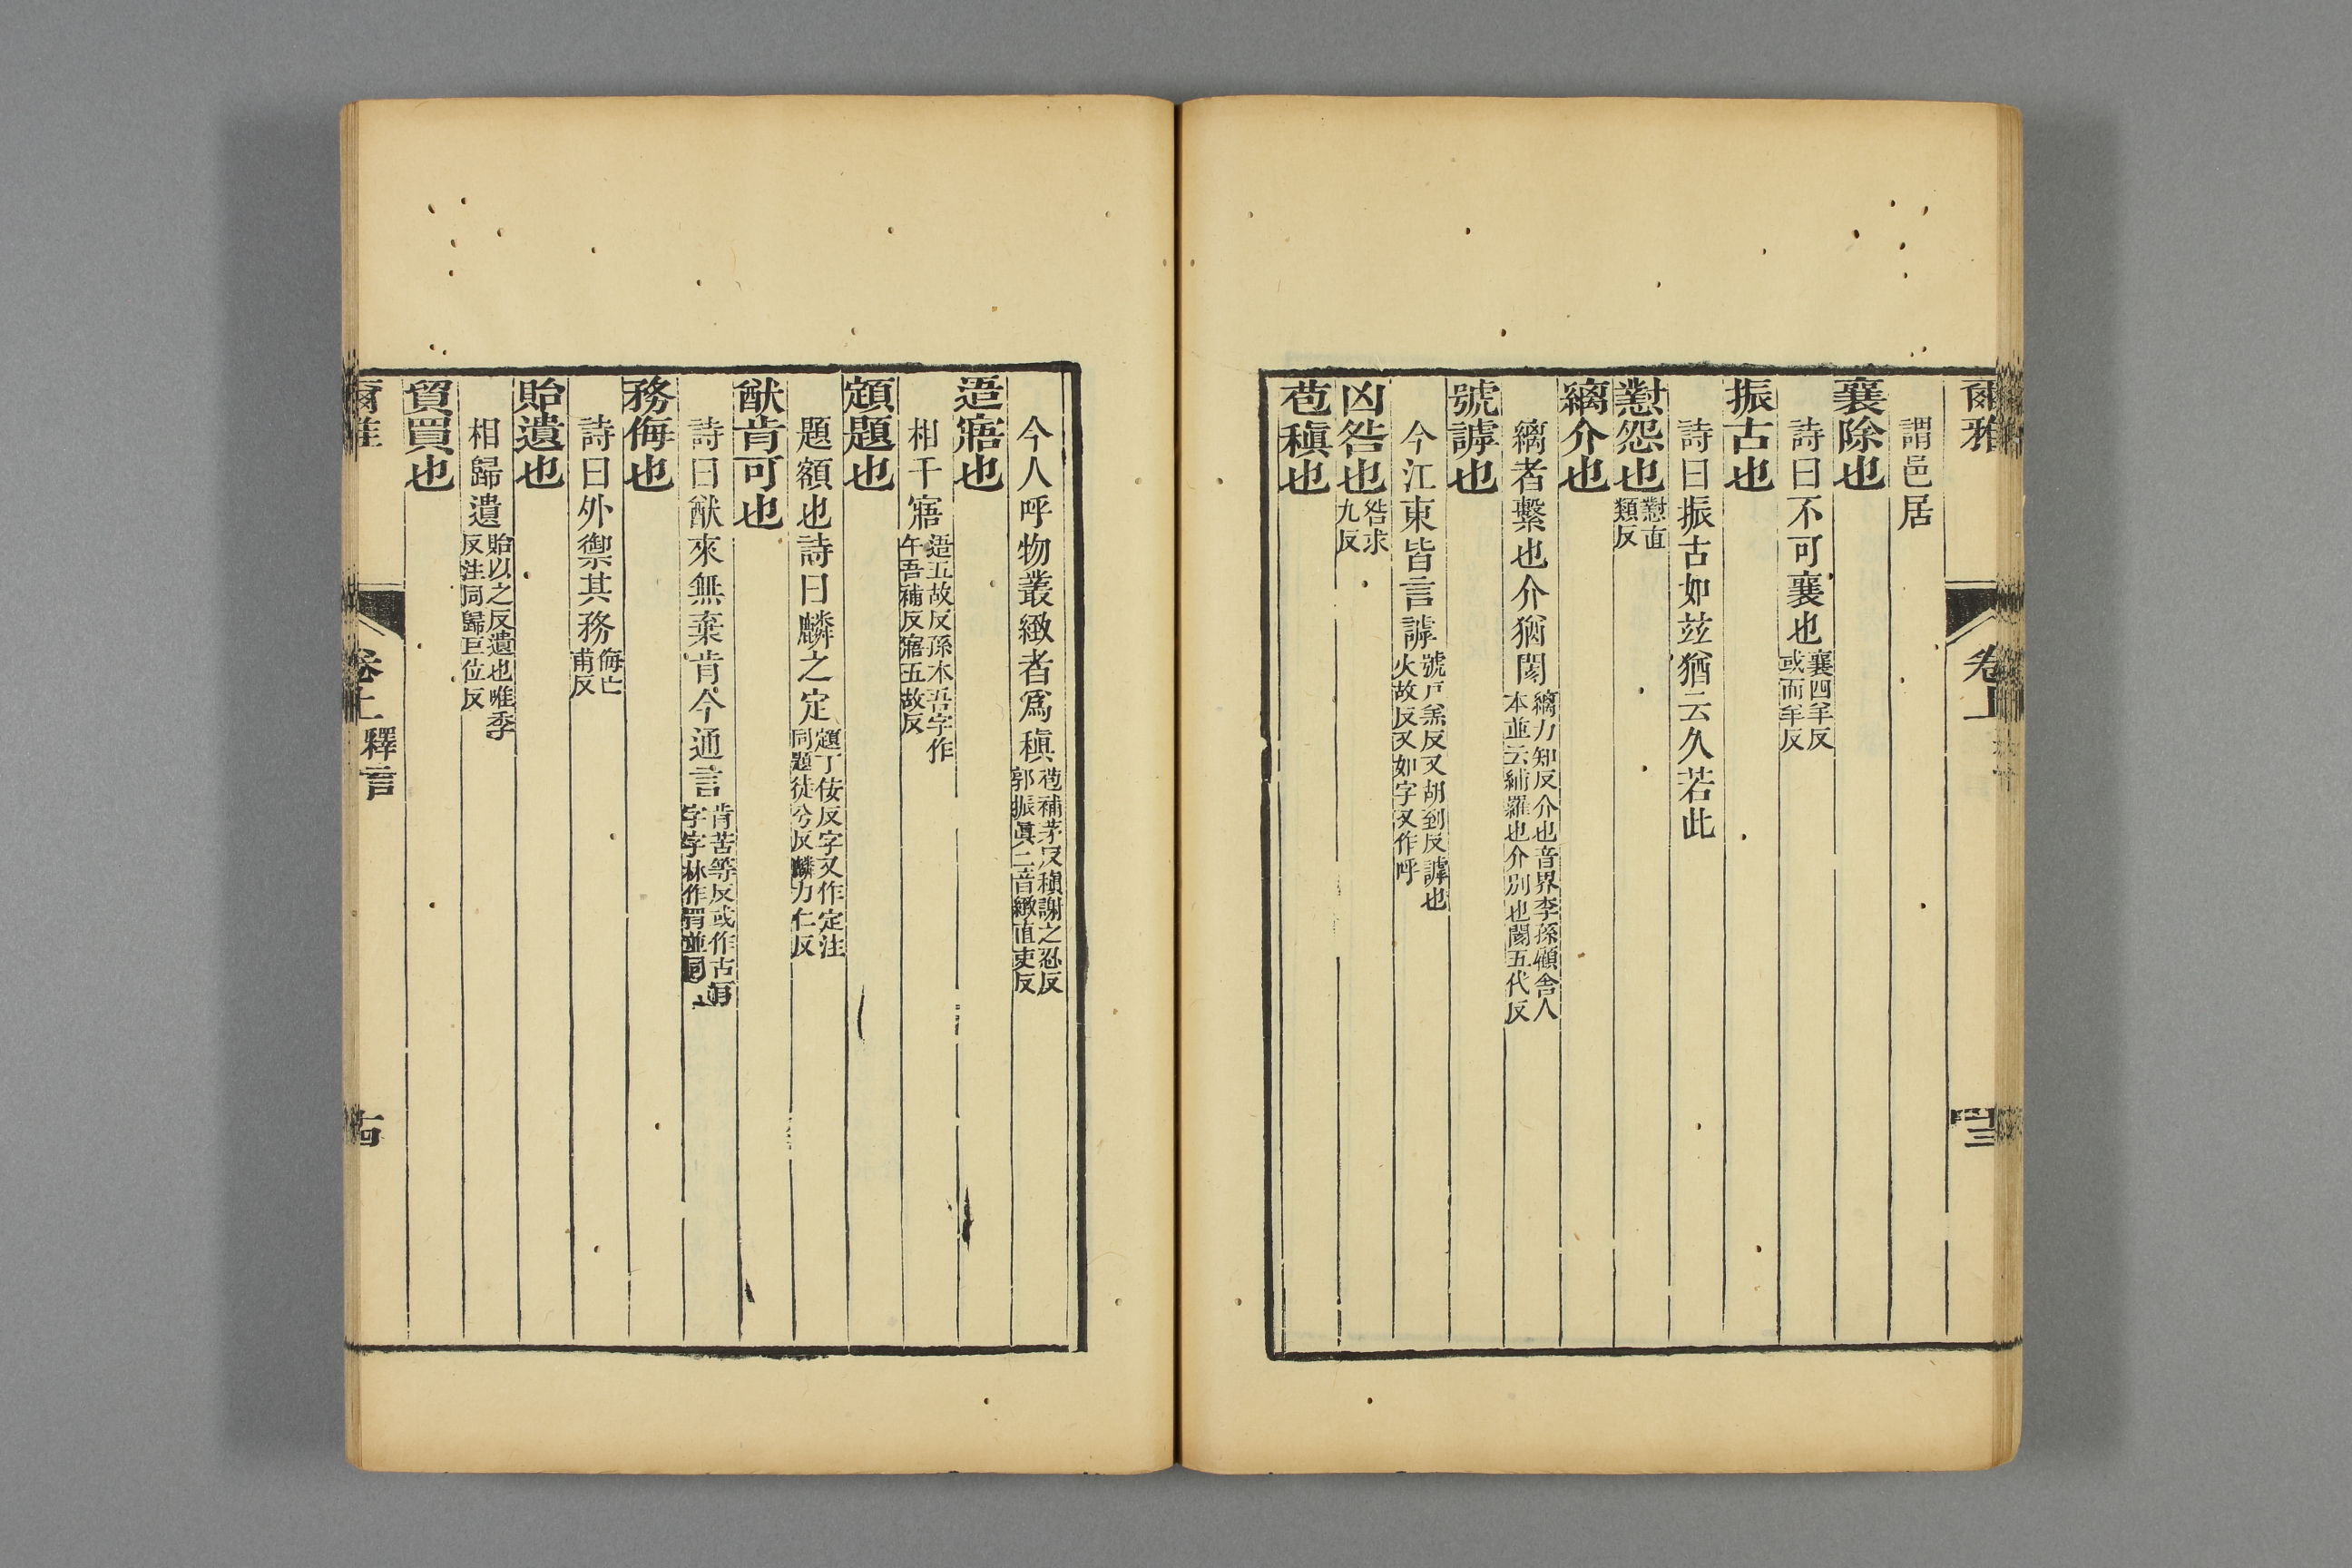 爾雅 卷上 四十三
謂邑居
襄除也
詩曰不可襄也襄四羊反或而羊反
振古也
詩曰振古如玆猶云久若此
懟怨也懟直類反
縭介也
縭者繫也介猶閡縭力知反介也音界李孫顧舍人本並云縭羅也介別也閡五代反
號謼也
今江東皆言謼號戶羔反又胡到反謼也火故反又如字又作呼
凶咎也咎求九反
苞稹也
今人呼物叢緻者爲稹苞補茅反稹謝之忍反郭振眞二音緻直吏反
逜寤也
相干寤逜五故反孫本吾字作午吾補反寤五故反
顁題也
題額也詩曰麟之定顁丁佞反字又作定注同題徒兮反麟力仁反
猷肯可也
詩曰猷來無棄肯今通言肯苦等反或作古
務侮也
詩曰外禦其務侮亡甫反
貽遺也
相歸遺貽以之反遺也唯季反注同歸巨位反
貿買也
爾雅 卷上 釋言